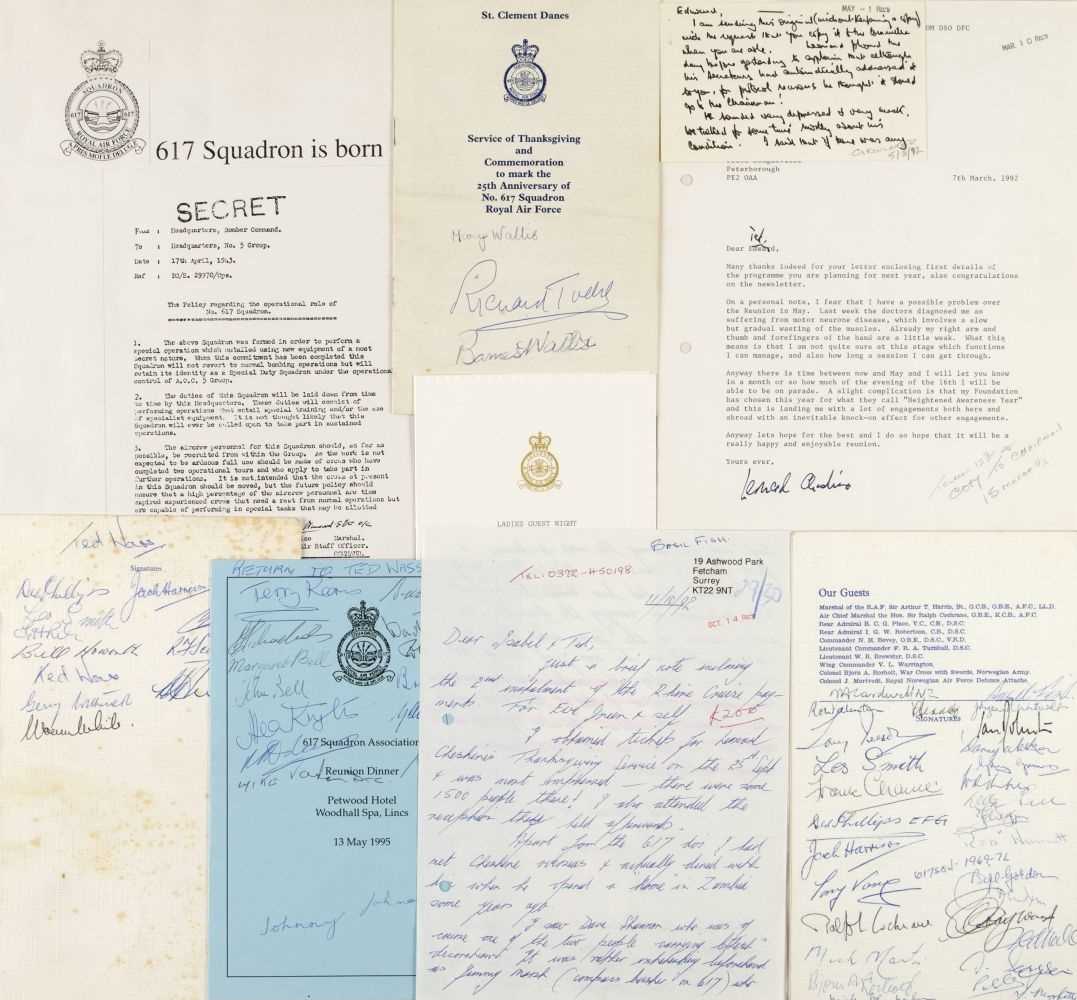 617 SQUADRON 617
ROYAL AIR FORCE
APRES MOI LE DELUGE
617 Squadron is born
SECRET
From : Headquarters, Bomber Command.
To : Headquarters, No. 5 Group.
Date : 17th April, 1943.
Ref : BC/S. 29770/Ops.
The Policy regarding the operational role of
No. 617 Squadron.
1. The above Squadron was formed in order to perform a
special operation which entailed using new equipment of a most
secret nature. When this commitment has been completed this
Squadron will not revert to normal bombing operations but will
retain its identity as a Special Duty Squadron under the operational
control of A.O.C. 5 Group.
2. The duties of this Squadron will be laid down from time
to time by this Headquarters. These duties will consist of
performing operations that entail special training and/or the use
of specialist equipment. It is not thought likely that this
Squadron will ever be called upon to take part in sustained
operations.
3. The aircrew personnel for this Squadron should, as far as
possible, be recruited from within the Group. As the work is not
expected to be arduous full use should be made of crews who have
completed two operational tours and who apply to take part in
further operations. It is not intended that the crews at present
in this Squadron should be moved, but the future policy should
ensure that a high percentage of the aircrew personnel are time
expired experienced crews that need a rest from normal operations but
are capable of performing in special tasks that may be allotted
Marshal.
Air Staff Officer.
St. Clement Danes
Service of Thanksgiving
and
Commemoration
to mark the
25th Anniversary of
No. 617 Squadron
Royal Air Force
Mary Wallis
Richard Todd
Barnes Wallis
MAY - 1 RECD
Edward,
I am sending this original (without keeping a copy)
with the request that you copy it to the Committee
when you are able. Leonard phoned the
day before yesterday to explain that although
his Secretary had automatically addressed it
to you, for protocol reasons he thought it should
go to the Chairman!
He sounded very depressed & very weak.
We talked for some time mostly about his
condition. I said that if there was any
5/3/92
OM DSO DFC
MAR 10 RECD
Peterborough
PE2 0AA
7th March, 1992
Ted,
Dear Edward,
Many thanks indeed for your letter enclosing first details of
the programme you are planning for next year, also congratulations
on the newsletter.
On a personal note, I fear that I have a possible problem over
the Reunion is May. Last week the doctors diagnosed me as
suffering from motor neurone disease, which involves a slow
but gradual wasting of the muscles. Already my right arm and
thumb and forefingers of the hand are a little weak. What this
means is that I am not quite sure at this stage which functions
I can manage, and also how long a session I can get through.
Anyway there is time between now and May and I will let you know
in a month or so how much of the evening of the 16th I will be
able to be on parade. A slight complication is that my Foundation
has chosen this year for what they call "Heightened Awareness Year"
and this is landing me with a lot of engagements both here and
abroad with an inevitable knock-on affect for other engagements.
Anyway lets hope for the best and I do so hope that it will be a
really happy and enjoyable reunion.
Yours ever,
Leonard Cheshire
COPY TO CHAIRMAN
LADIES GUEST NIGHT
Ted Wass
Signatures
Des Phillips
Jack Harrison
Les Smith
Bill Howarth
Ted Wass
Gerry Witherick
RETURN TO TED WASS
Terry Kearns
Margaret Bell
John Bell
617 Squadron Association
Reunion Dinner
Petwood Hotel
Woodhall Spa, Lincs
13 May 1995
Johnny Johnson
BASIL FISH.
TEL: 0372-450198
19 Ashwood Park
Fetcham
Surrey
KT22 9NT
27/30
11/10/92
OCT 14 RECD
Dear Isabel & Ted,
Just a brief note enclosing
the 2nd instalment of the Rhine Cruise pay-
ments. For Eve Green & self £200
I obtained tickets for Leonard
Cheshire's Thanksgiving Service on the 25th Sept
& was most impressed — there were some
1500 people there! I also attended the
reception these held afterwards.
Apart from the 617 dos I had
met Cheshire overseas & actually dined with
him when he opened a "home" in Zambia
some years ago.
I saw Dave Shannon who was of
course one of the two people carrying Cheshire's
decorations. It was rather outstanding beforehand
as Jimmy Marsh (compass basher on 617) who
Our Guests
Marshal of the R.A.F. Sir Arthur T. Harris, Bt., G.C.B., O.B.E., A.F.C., LL.D.
Air Chief Marshal the Hon. Sir Ralph Cochrane, G.B.E., K.C.B., A.F.C.
Rear Admiral B. C. G. Place, V.C., C.B., D.S.C.
Rear Admiral I. G. W. Robertson, C.B., D.S.C.
Commander N. R. Bovey, O.B.E., D.S.C., V.R.D.
Lieutenant Commander F. R. A. Turnbull, D.S.C.
Lieutenant W. R. Brewster, D.S.C.
Wing Commander V. L. Warrington,
Colonel Bjorn A. Rostoft, War Cross with Swords, Norwegian Army.
Colonel J. Mortvedt, Royal Norwegian Air Force Defence Attache.
SIGNATURES
Les Smith
Des Phillips EFFG
Jack Harrison
617 Sqn 1969-72
Tony Vange
Ralph Cochrane
Mick Martin